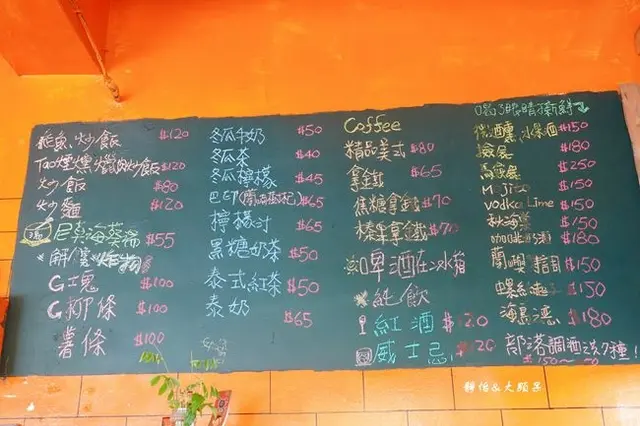 飛魚炒飯 $120
Tao煙燻臘肉炒飯 $120
炒飯 $80
炒麵 $120
尼莫海葵湯 $55
*解饞炸物
G塊 $100
G柳條 $100
薯條 $100
冬瓜牛奶 $50
冬瓜茶 $40
冬瓜檸檬 $45
巴印 $65
檸檬汁 $65
黑糖奶茶 $50
泰式紅茶 $50
泰奶 $65
Coffee
精品美式 $80
拿鐵 $65
焦糖拿鐵 $70
榛果拿鐵 $70
啤酒在冰箱
純飲
紅酒 $120
威士忌 $120
$150
$180
$250
Mojito $150
vodka Lime $150
秋海棠 $150
咖啡奶酒 $180
$150
螺絲起子 $150
海島灣 $180
部落調酒
$150~
靜怡&大顆呆